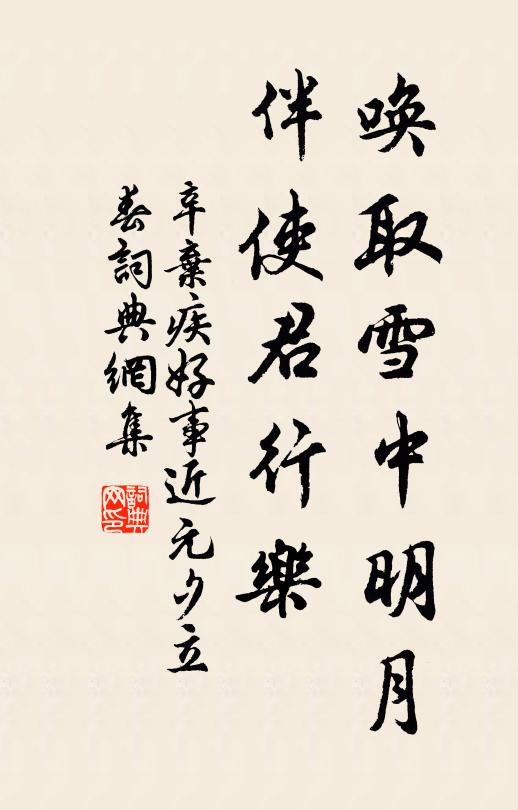 喚取雪中明月
伴使君行樂
辛棄疾好事近元夕立
春詞典網集
詞典
网印